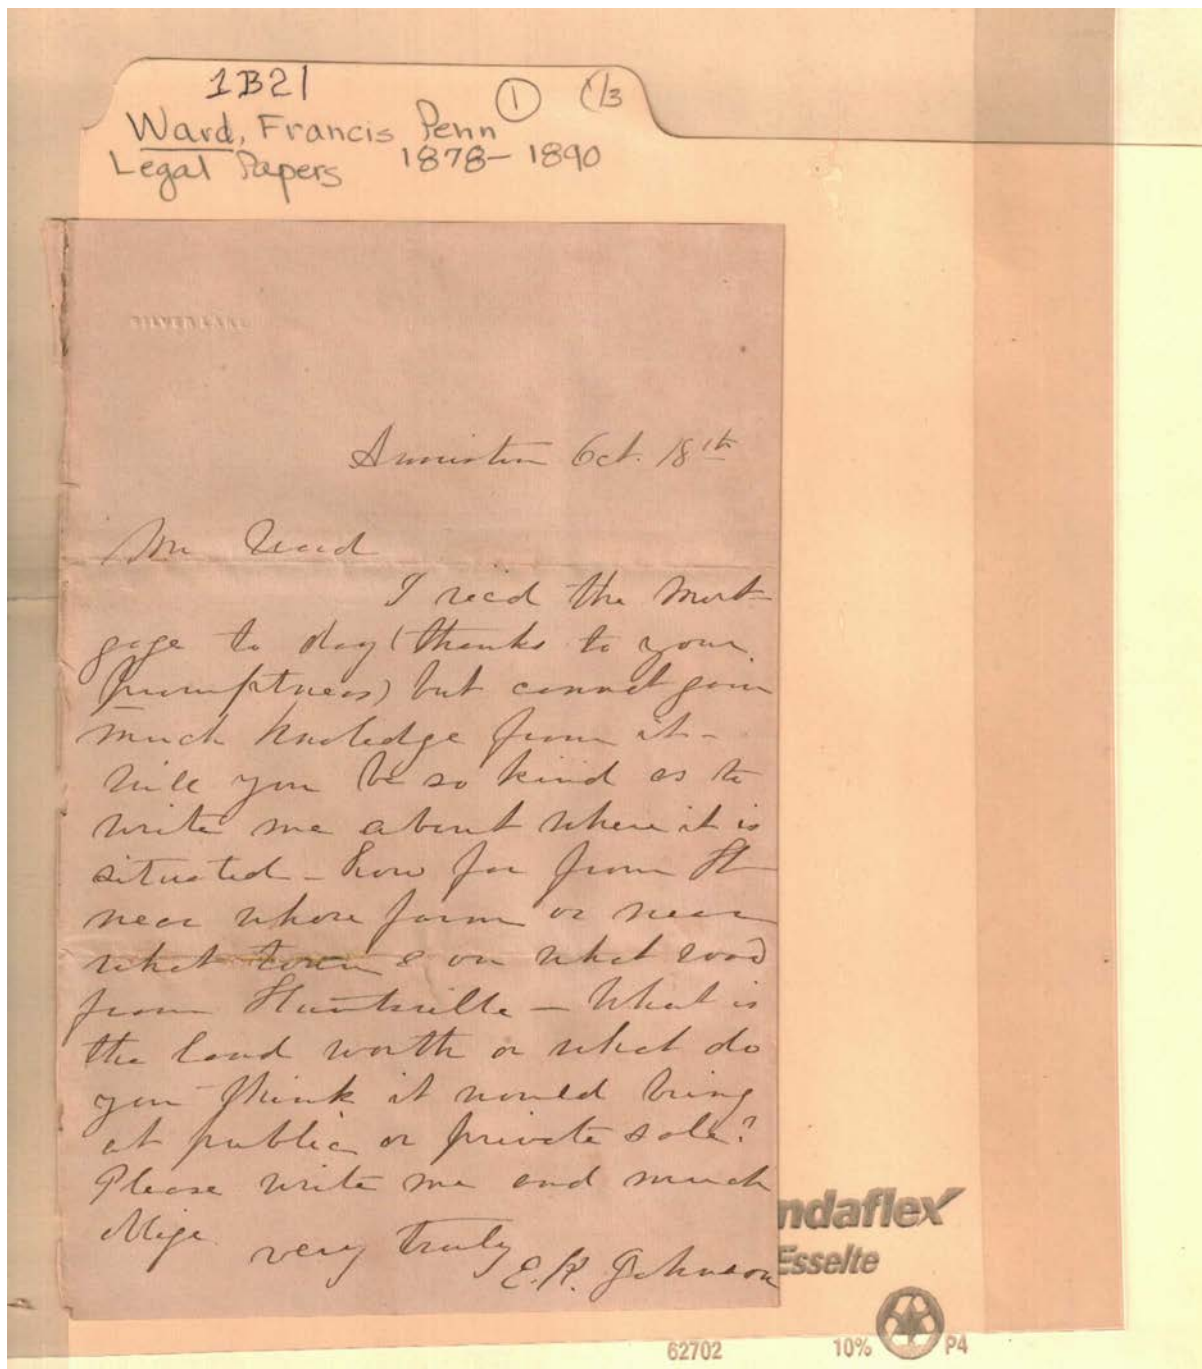 1B21
① 1/3
Ward, Francis Penn
Legal Papers 1878-1890
SILVER LAKE
Anniston Oct. 18th
Mr Ward
I recd the mort-
gage to day (thanks to your
promptness) but cannot gain
much knoledge from it -
will you be so kind as to
write me about where it is
situated - how far from H
near whose farm or near
what town & on what road
from Huntsville - What is
the land worth or what do
you think it would bring
at public or private sale?
Please write me and much
oblige
very truly
E.R. Johnson
ndaflex
Esselte
62702
10%
P4